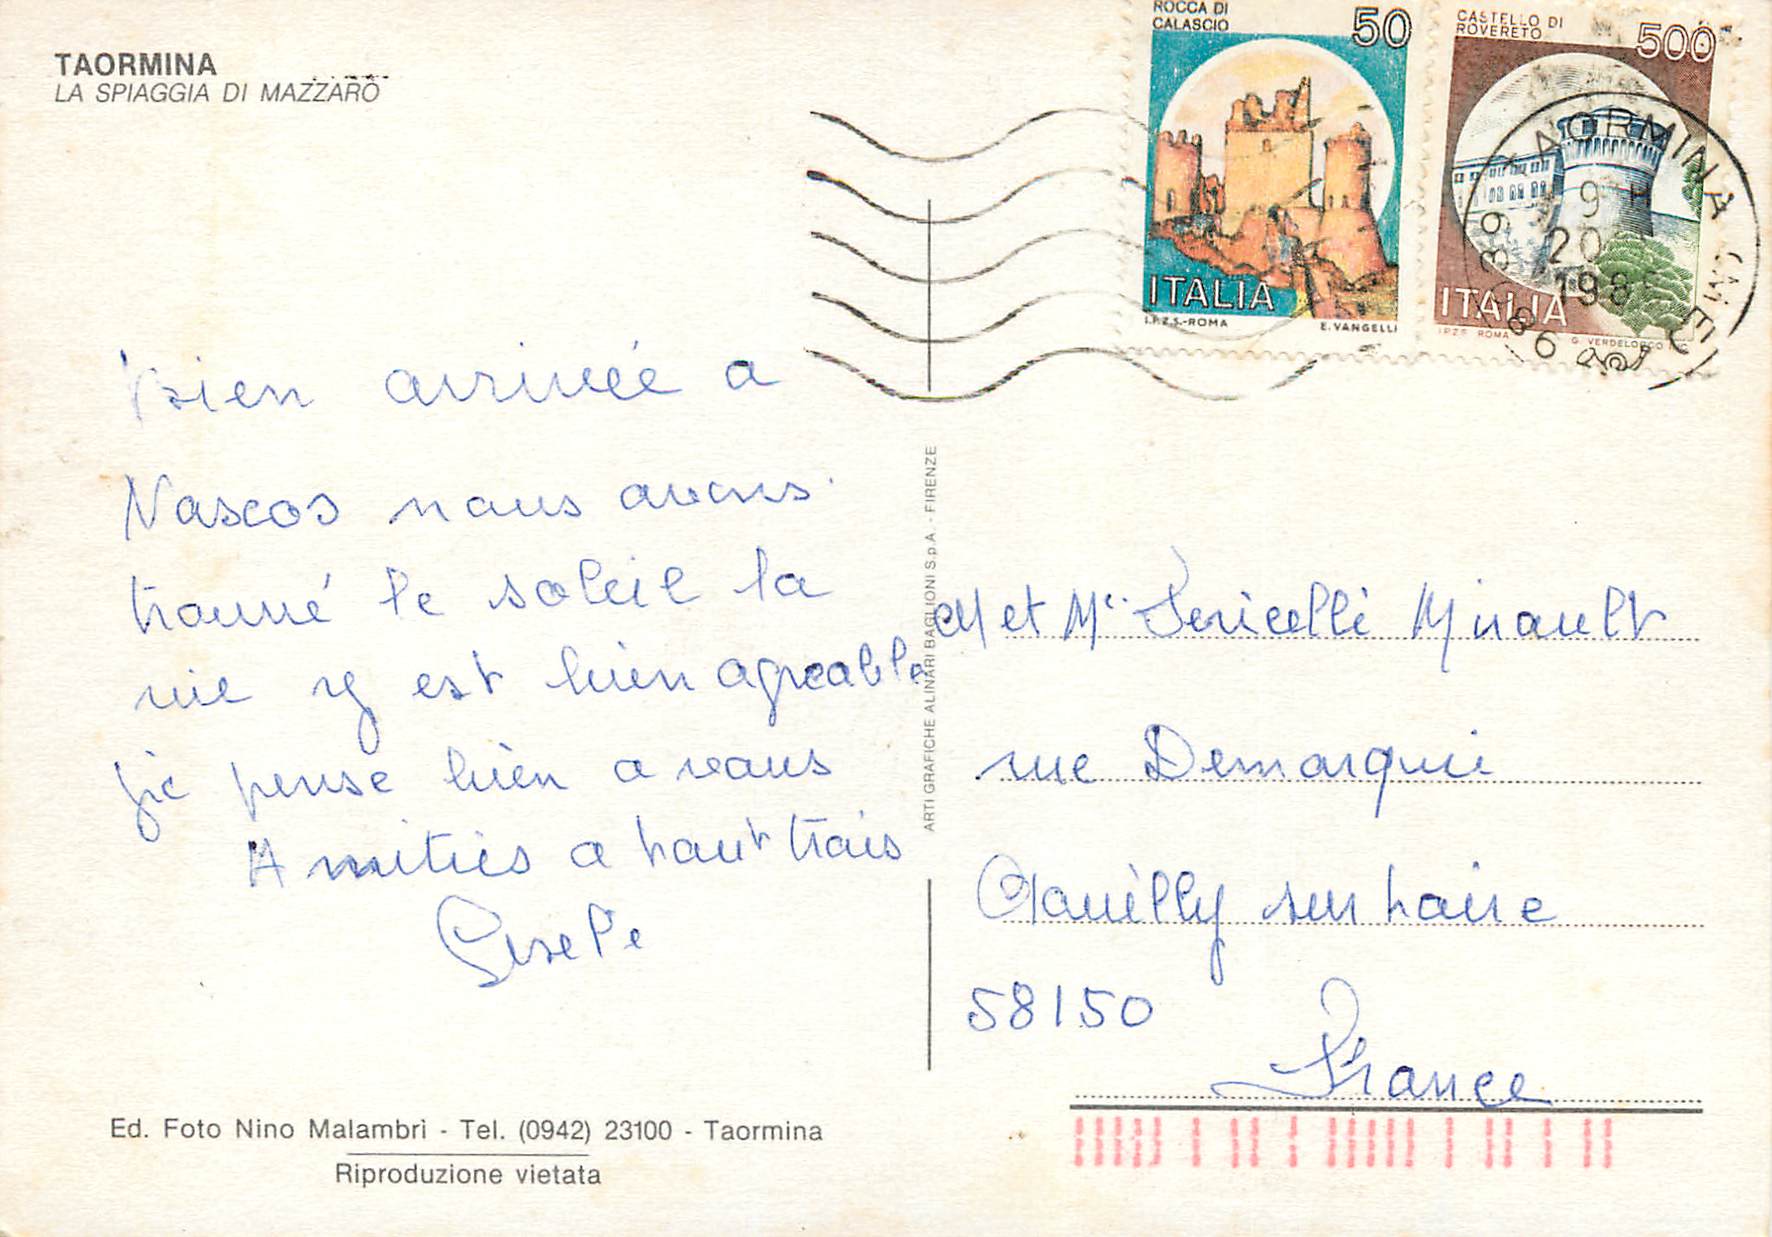 TAORMINA
LA SPIAGGIA DI MAZZARÒ
ROCCA DI
CALASCIO
50
ITALIA
I.P.Z.S.-ROMA E. VANGELLI
CASTELLO DI
ROVERETO
500
ITALIA
I.P.Z.S. ROMA G. VERDELOCCO INC
TAORMINA (ME)
98039
9
20
198
Bien arrivée a
Nascos nous avons
trouvé le soleil la
vie y est bien agreable
je pense bien a vous
Amitiés a tout trois
Gisele
ARTI GRAFICHE ALINARI BAGLIONI S.p.A. - FIRENZE
M et Me Mirault
rue Demarquii
sur Loire
58150
France
Ed. Foto Nino Malambrì - Tel. (0942) 23100 - Taormina
Riproduzione vietata